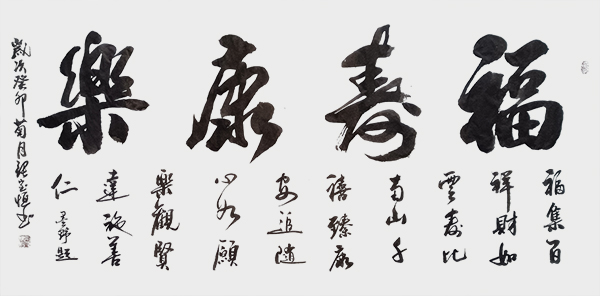 福壽康樂
福集百
祥財如
雲壽比
南山千
禧臻康
安追隨
心如願
樂觀賢
達施善
仁 題
歲次癸卯菊月 書